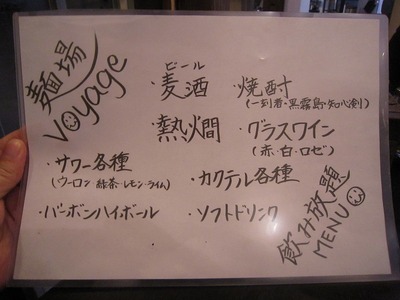 麺場
Voyage
ビール
・麦酒
・焼酎
(一刻者・黒霧島・知心剣)
・熱燗
・グラスワイン
(赤・白・ロゼ)
・サワー各種
(ウーロン・緑茶・レモン・ライム)
・カクテル各種
・バーボンハイボール
・ソフトドリンク
飲み放題
MENU